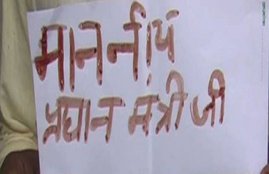 माननीय
प्रधान मंत्री जी